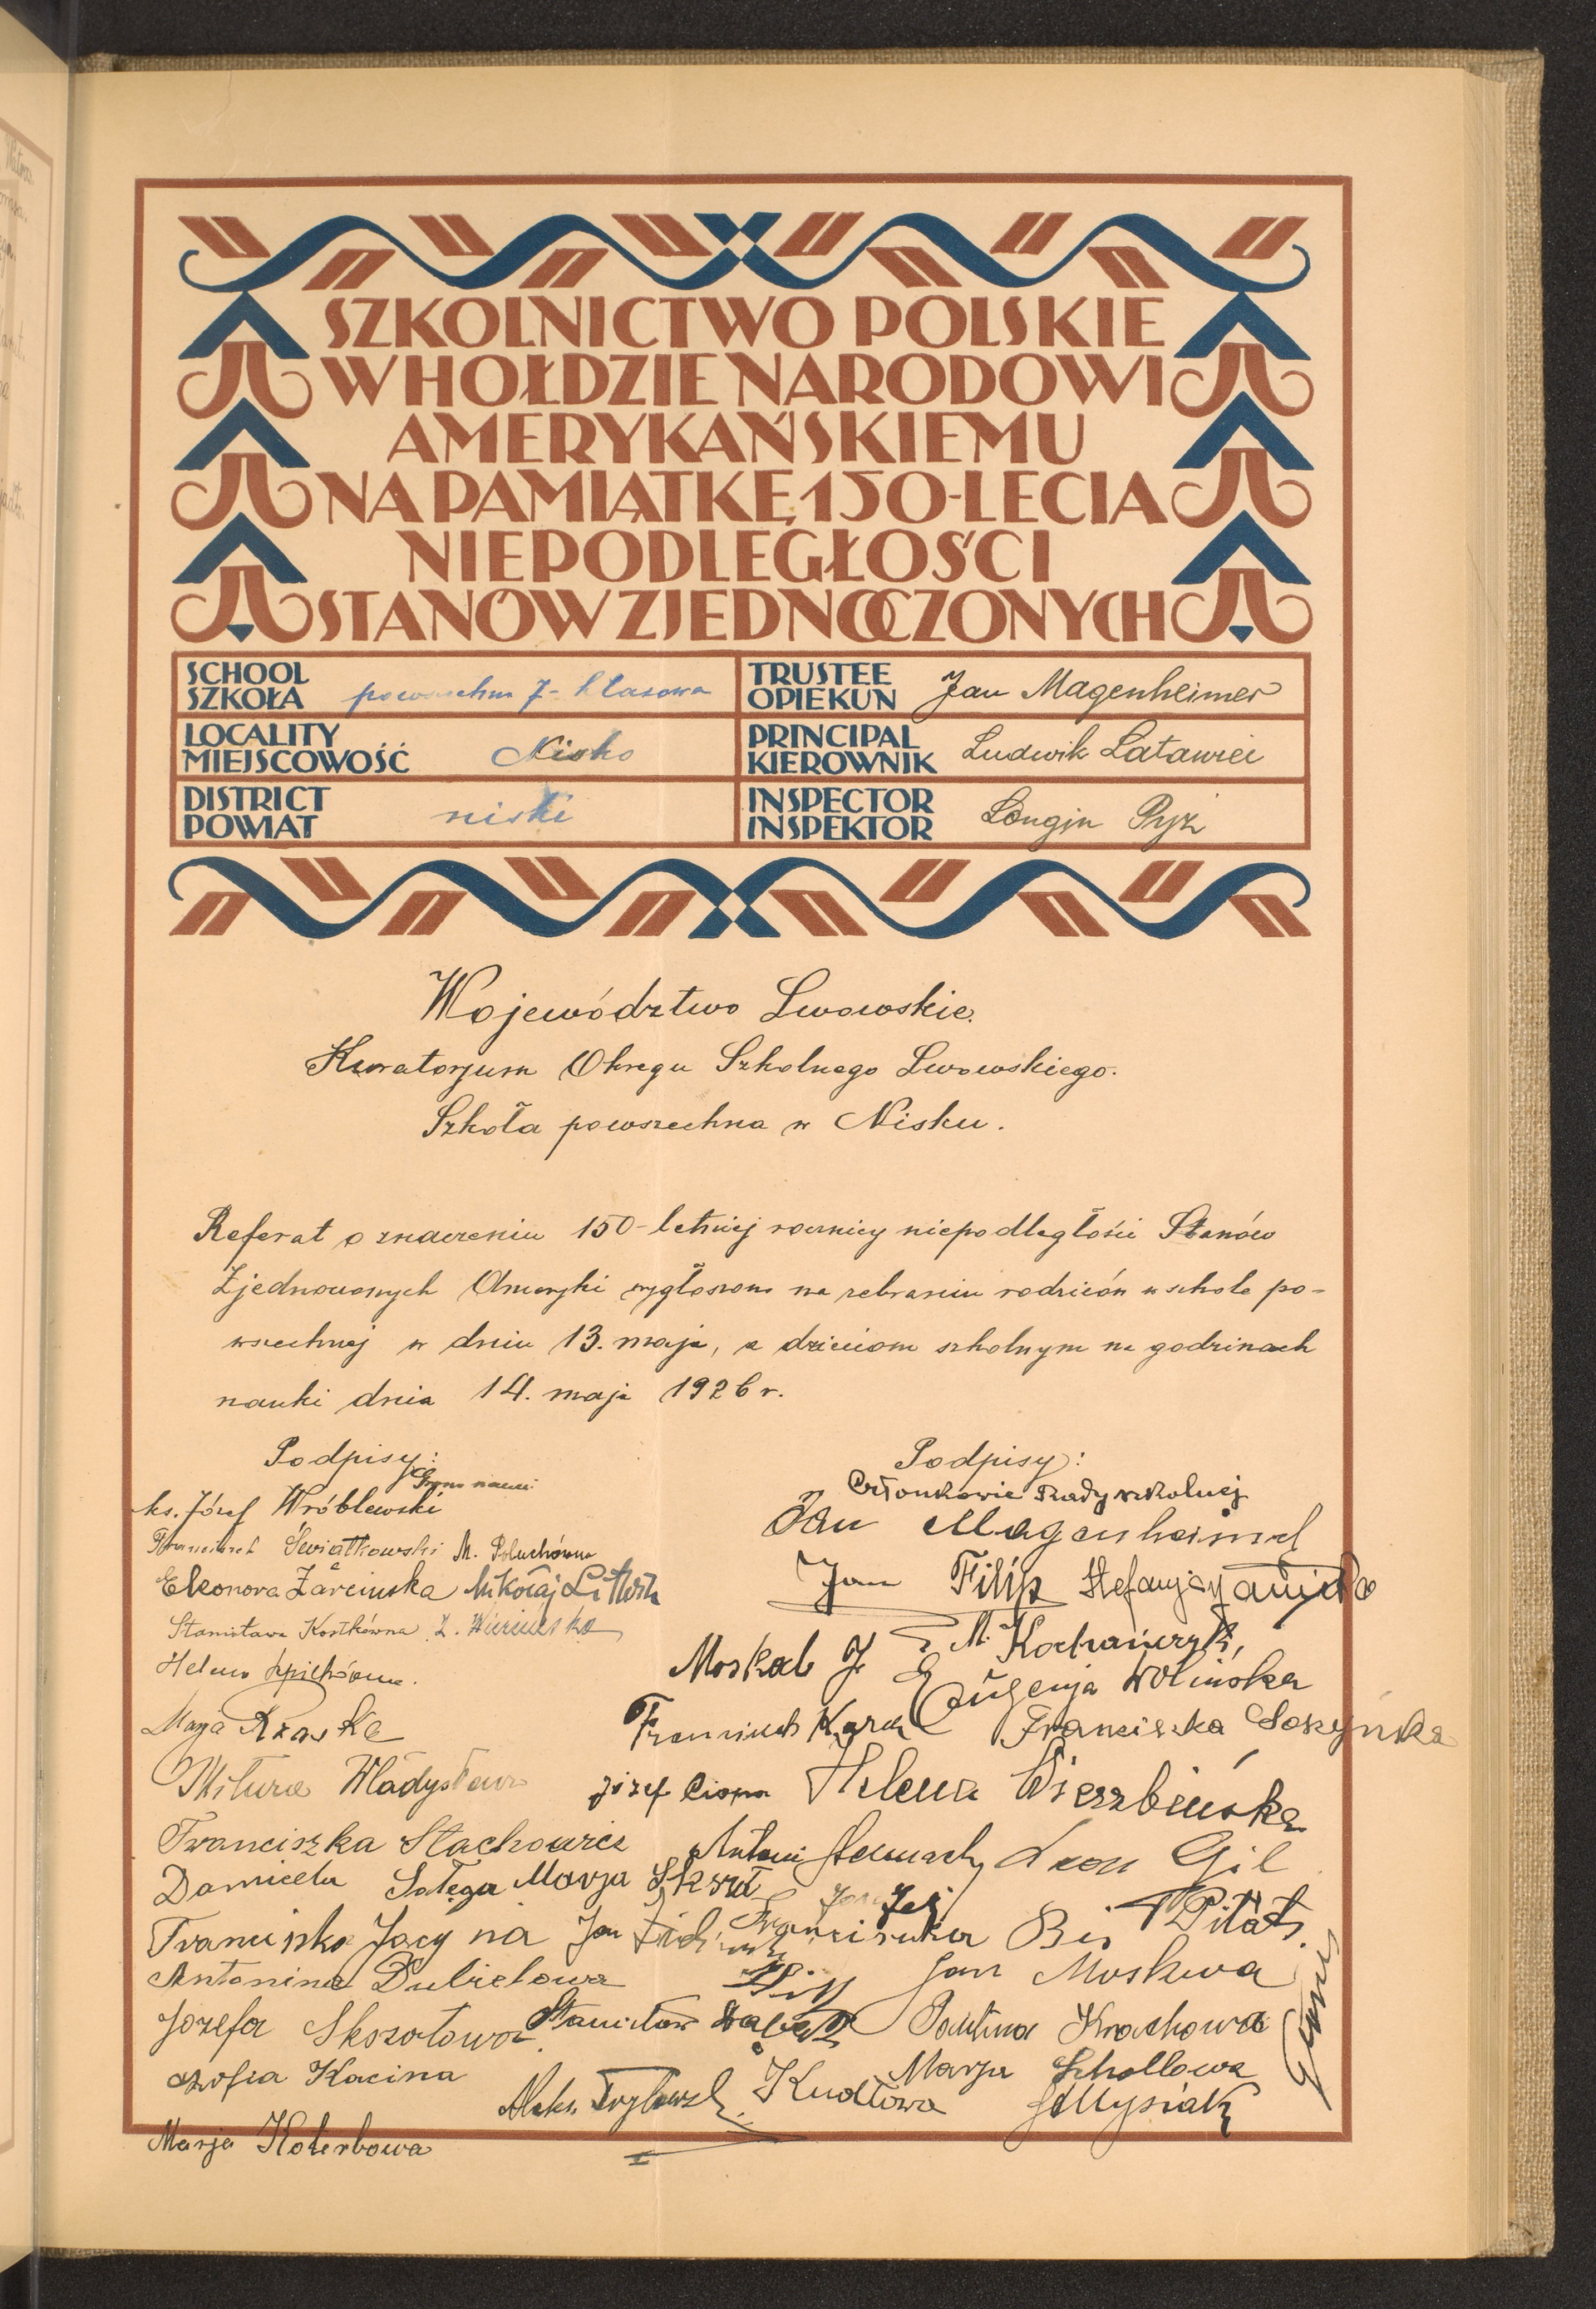 SZKOLNICTWO POLSKIE
W HOŁDZIE NARODOWI
AMERYKAŃSKIEMU
NA PAMIĄTKĘ 150-LECIA
NIEPODLEGŁOŚCI
STANÓW ZJEDNOCZONYCH
SCHOOL
SZKOŁA powszechna 7-klasowa
TRUSTEE
OPIEKUN Jan Magenheimer
LOCALITY
MIEJSCOWOŚĆ Nisko
PRINCIPAL
KIEROWNIK Ludwik Latawiec
DISTRICT
POWIAT niski
INSPECTOR
INSPEKTOR Longin Pyż
Województwo Lwowskie.
Kuratorjum Okręgu Szkolnego Lwowskiego.
Szkoła powszechna w Nisku.
Referat o znaczeniu 150-letniej rocznicy niepodległości Stanów
Zjednoczonych Ameryki wygłoszono na zebraniu rodziców w szkole po-
wszechnej w dniu 13. maja, a dzieciom szkolnym na godzinach
nauki dnia 14. maja 1926 r.
Podpisy:
Grono naucz.
ks. Józef Wróblewski
Franciszek Świątkowski M.
Eleonora Mikołaj
Stanisława Kostkówna Z.
Helena
Marja
Mitura Władysław
Franciszka Stachowicz
Daniela Sałęga Marja
Jan
Antonina Dubielowa
Józefa Skszatowa
Zofia Kacina
Marja Koterbowa
Podpisy:
Członkowie Rady szkolnej
Jan Magenheimer
Jan Filip Stefanja
M.
Moskal J.
Eugenja Wolińska
Franciszek Franciszka
Józef Helena Wierzbińska
Antoni Leon Gil
Franciszka Bis
Jan Moskwa
Stanisław Paulina Krachowa
Marja Scholłowa
Kudłowa